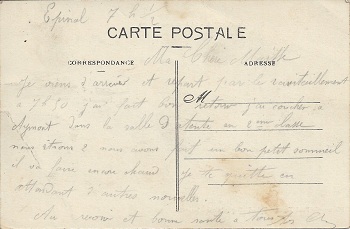 Epinal 7 h 1/2
CARTE POSTALE
CORRESPONDANCE
ADRESSE
Je viens d'arriver et repart par le ravitaillement
à 7h50 j'ai fait bon
M
retour j'ai coucher à
dans la salle d
tente en 2me classe
nous étions 2 nous avons
fait un bon petit sommeil
il va faire encore chaud
Je te quitte en
attendant d'autres nouvelles.
Au revoir et bonne santé à tous